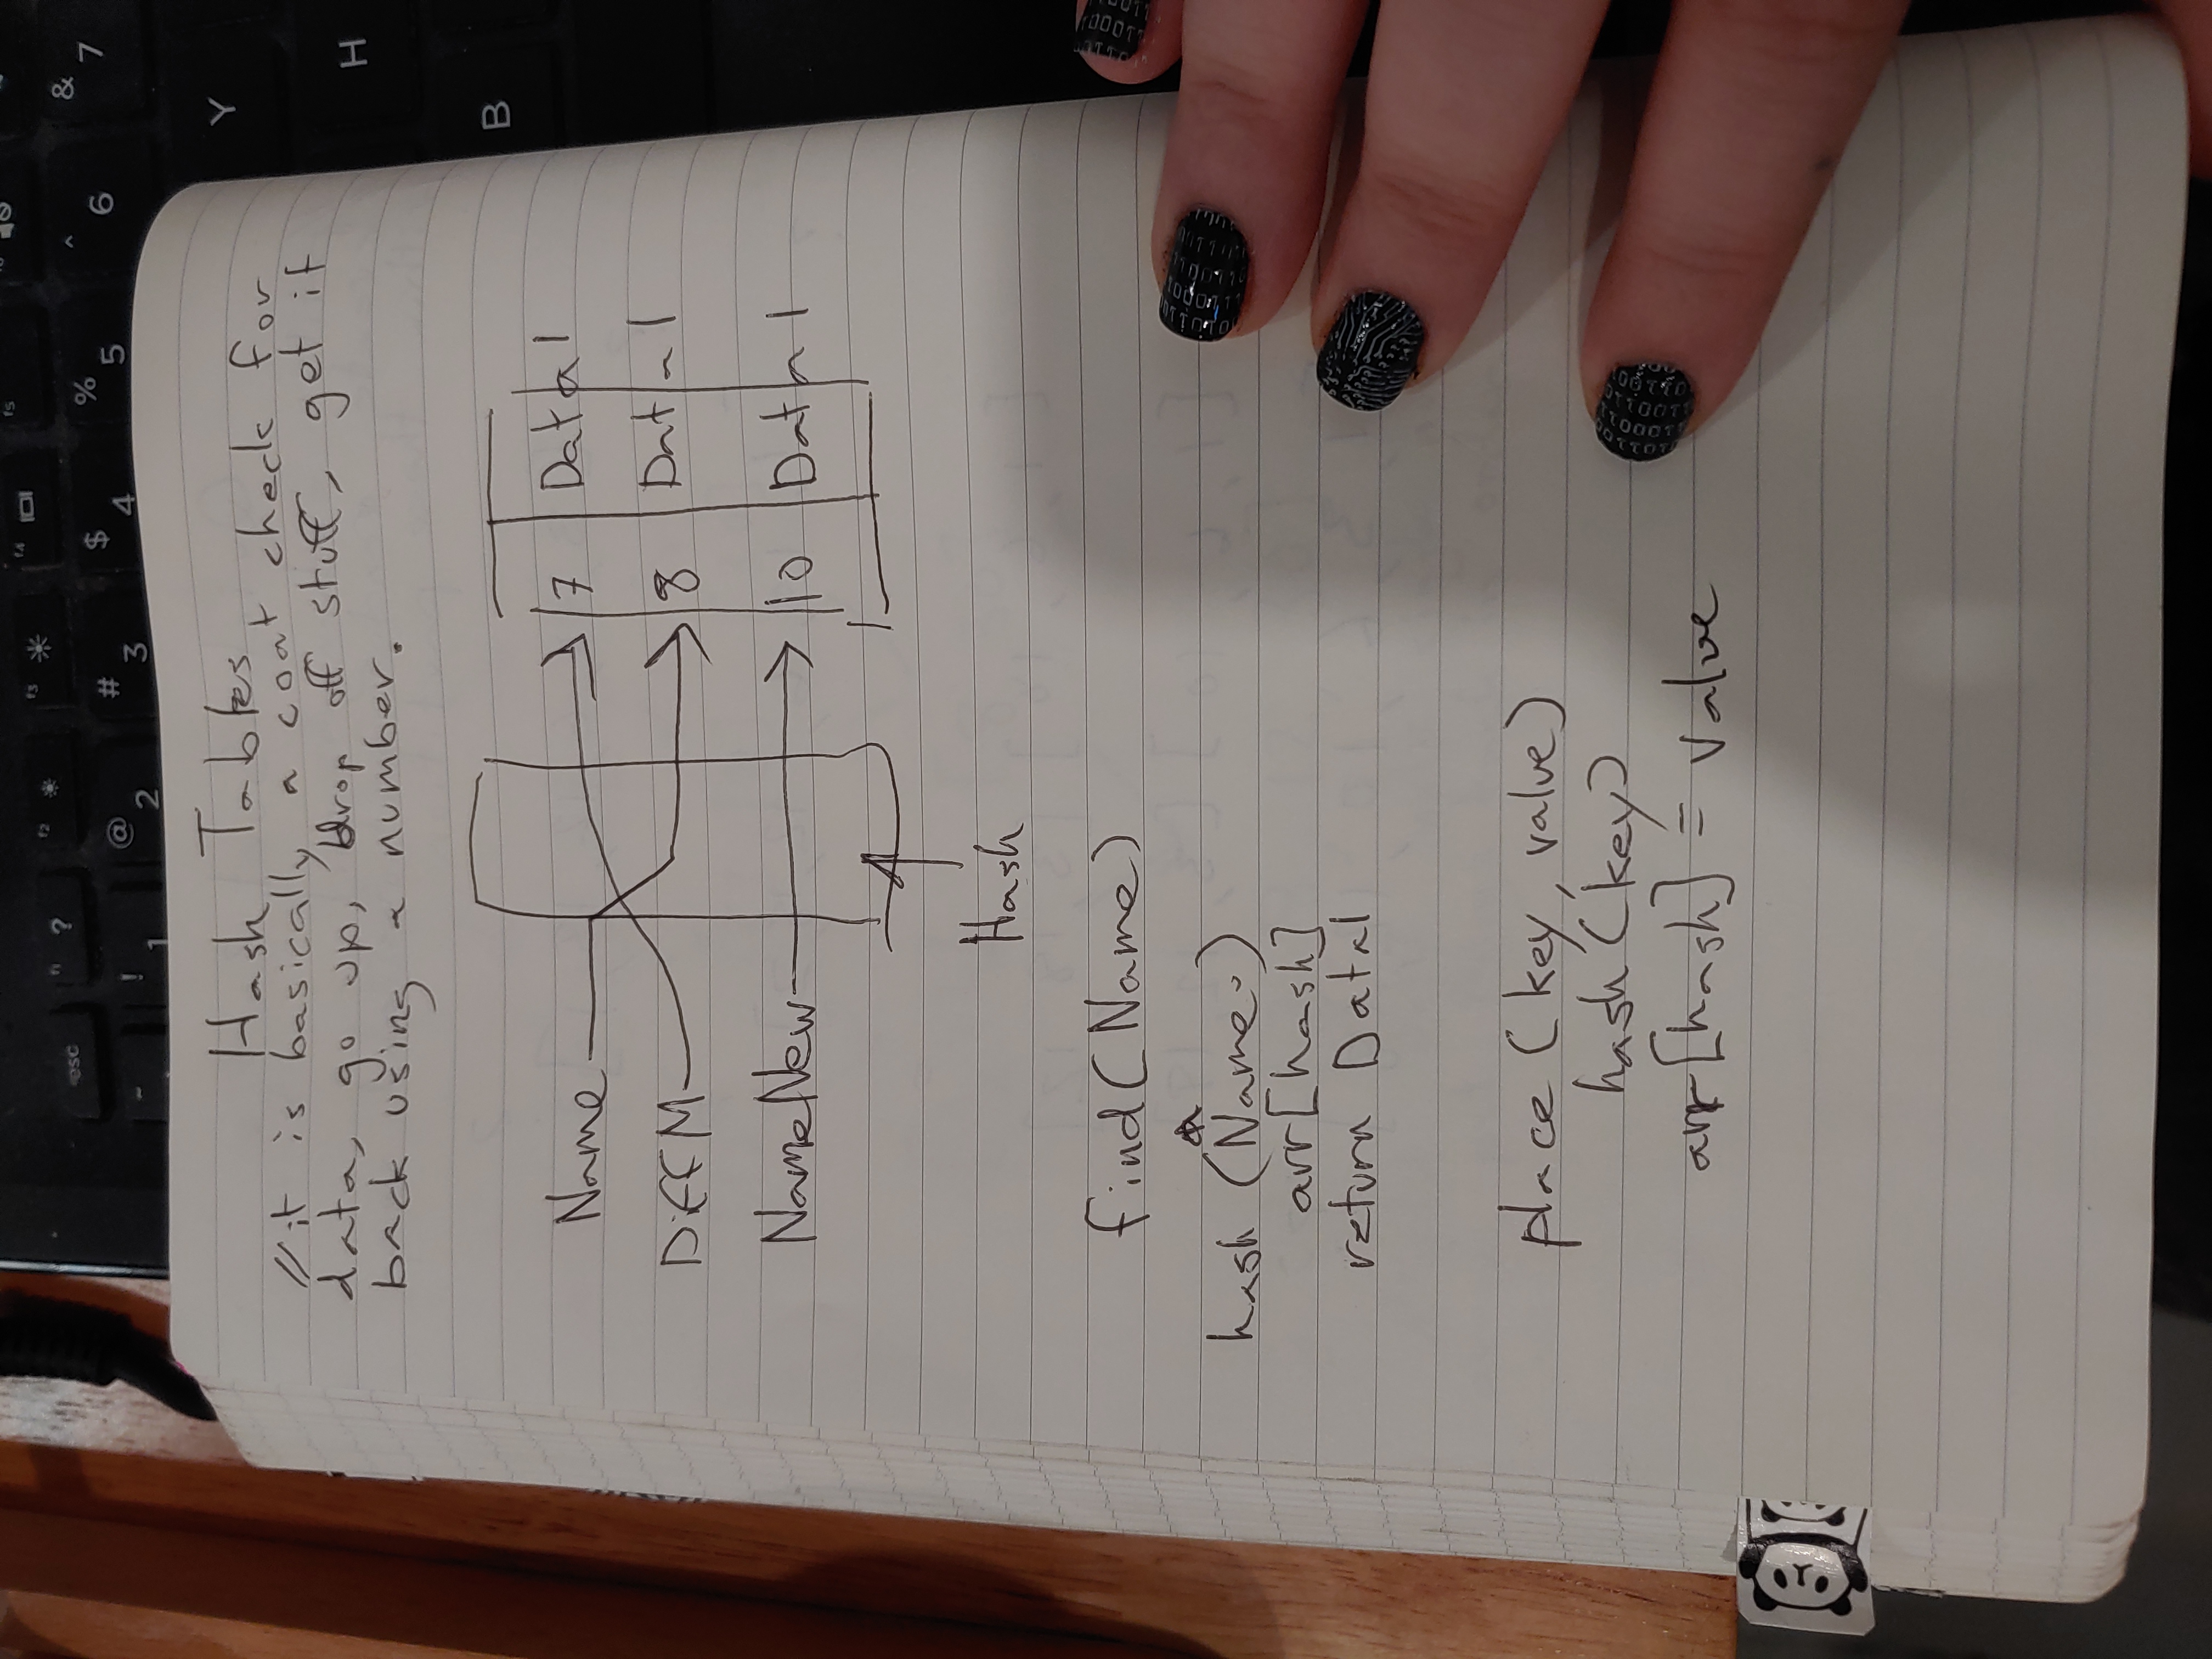 esc
f1 ?
f2
f3
f4
f5
~
! 1
@ 2
# 3
$ 4
% 5
^ 6
& 7
Y
H
B
Hash Tables
// it is basically a coat check for
data, go up, drop off stuff, get it
back using a number.
Name 7 Data 1
DiffM 8 Data 1
NameNew 10 Data 1
Hash
find(Name)
hash (Name)
arr[hash]
return Data1
place (key, value)
hash (key)
arr[hash] = value